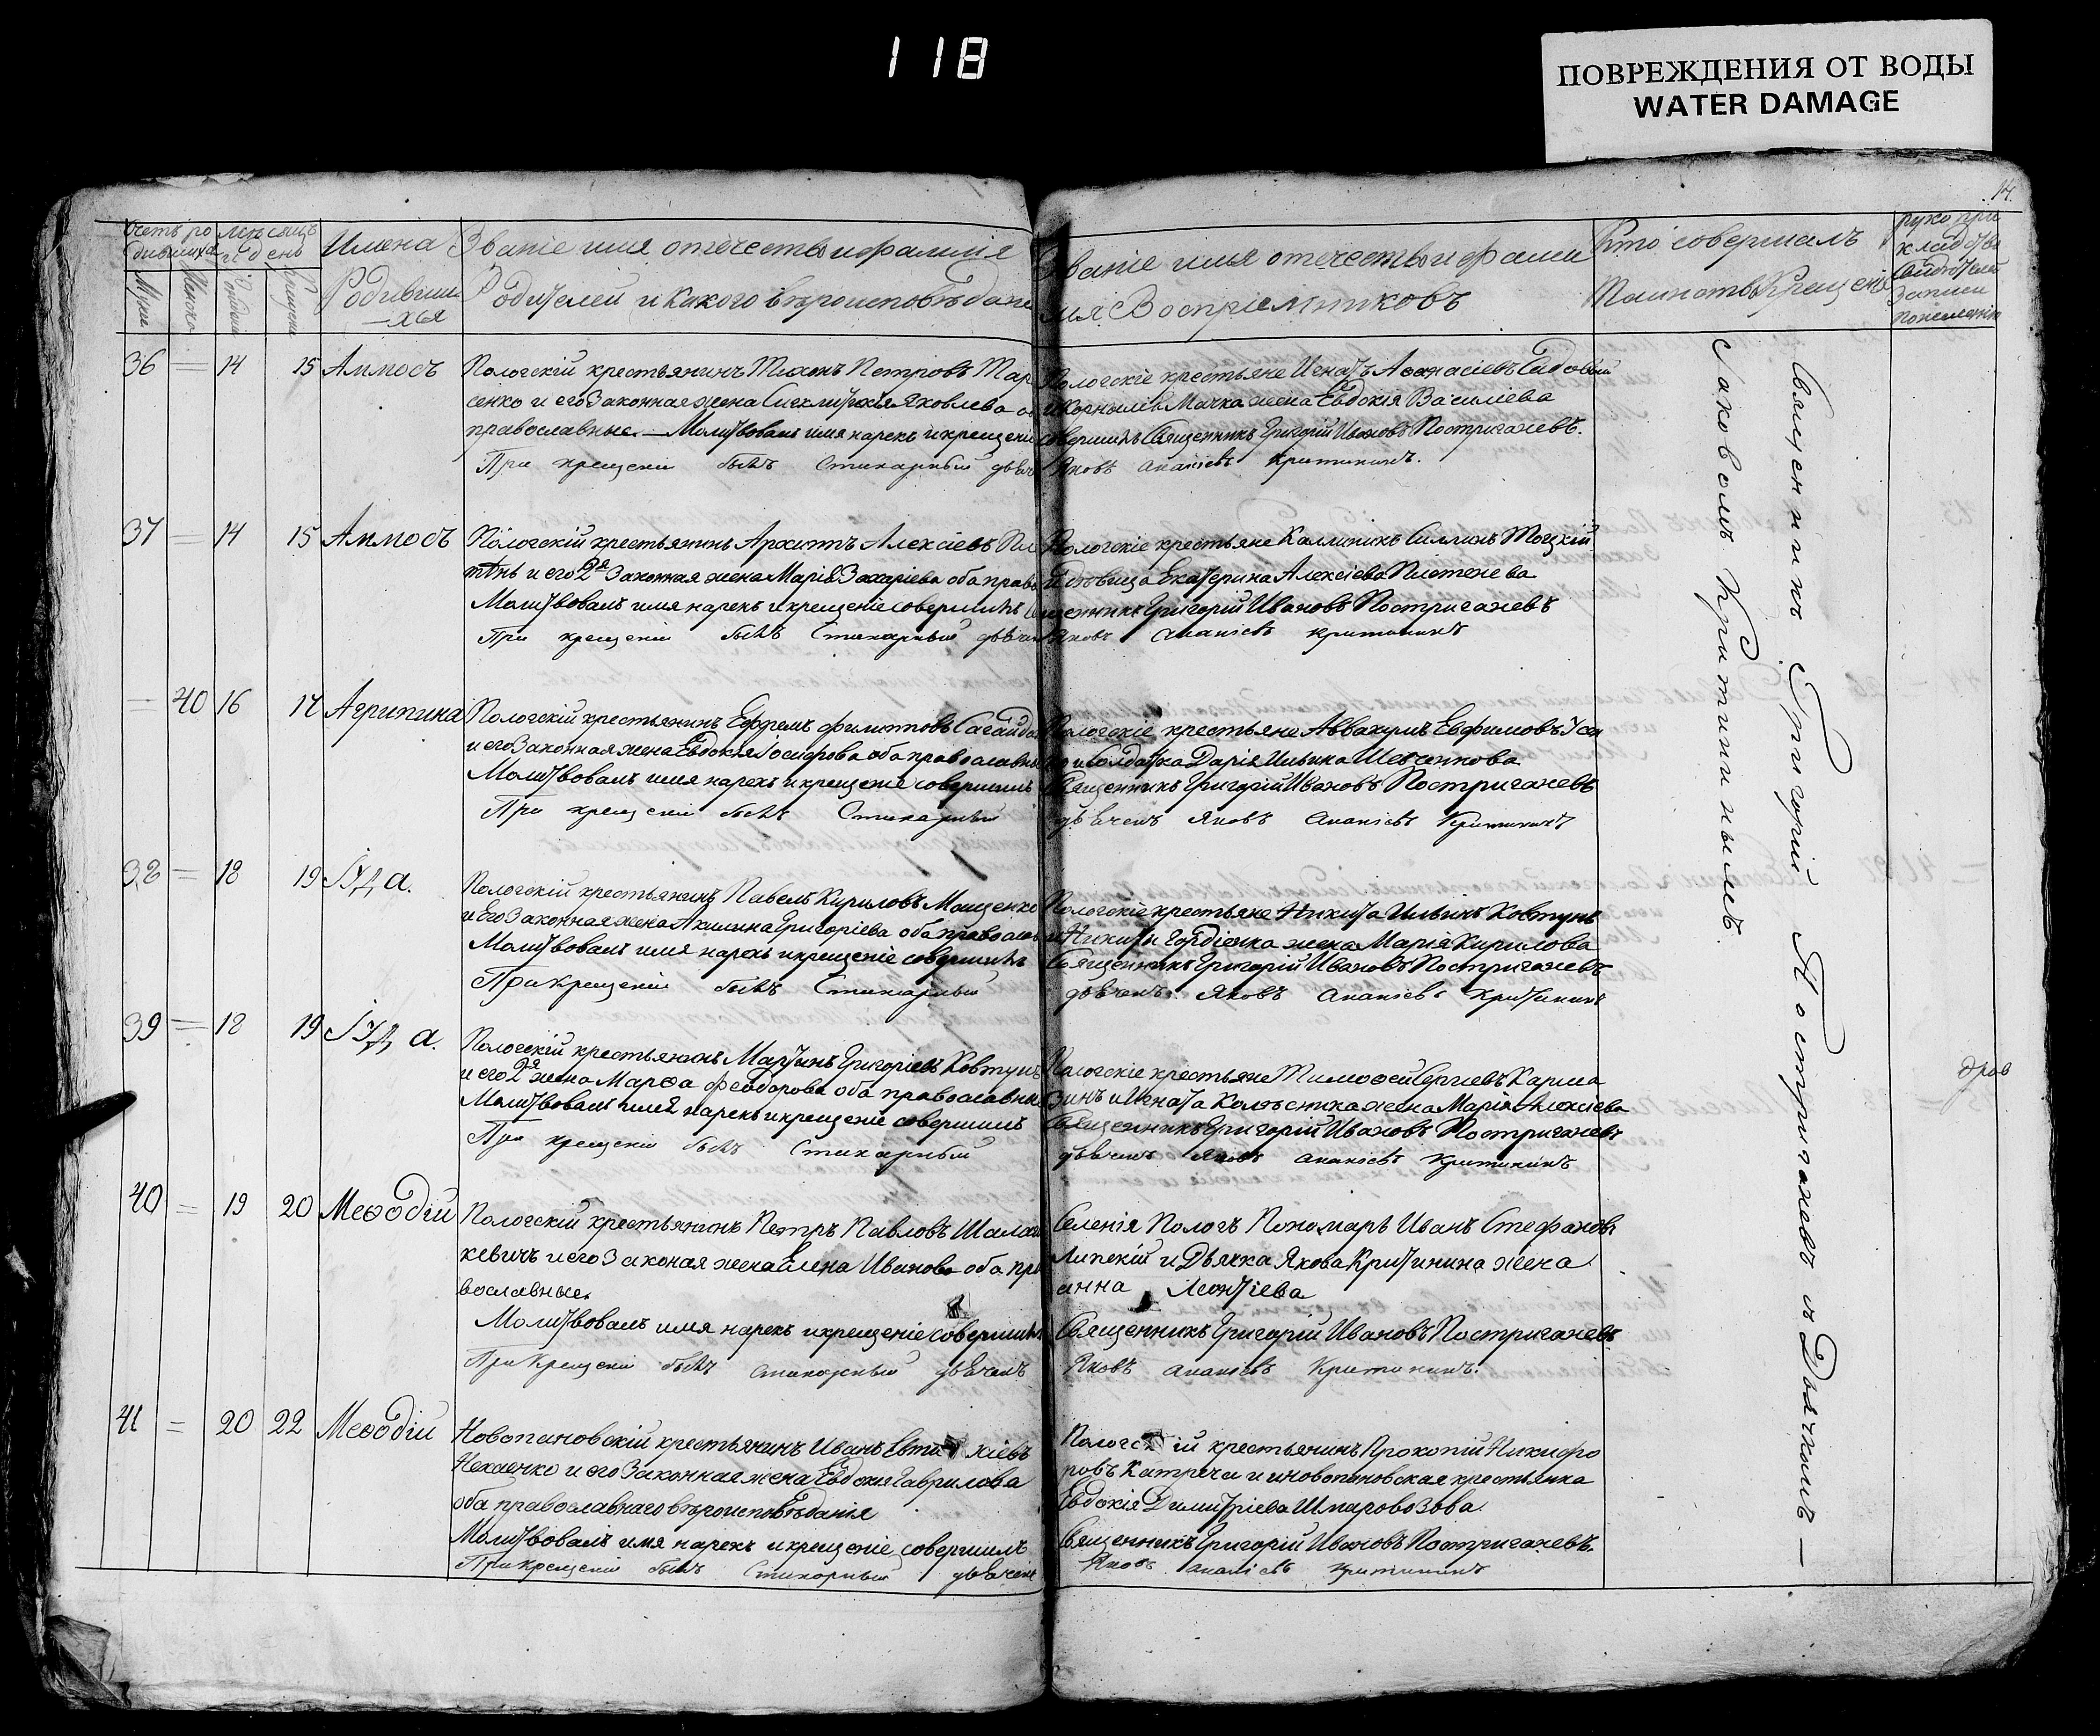 118
ПОВРЕЖДЕНИЯ ОТ ВОДЫ
WATER DAMAGE
14.
Счетъ ро мѣсяцъ Имена Званіе имя отечество и фамилія
дившихся и день Родивши Родителей и какого вѣроисповѣдані
Мужес Женско Рожденія Крещенія —хся
Званіе имя отечество и фами Кто совершалъ руко при
лія Воспріемниковъ Таинство Крещенія кладство
свидѣтелей
записи
по желанію
36 = 14 15 Аммосъ Пологскій крестьянинъ Тихонъ Петровъ Мар
сенко и его законная жена Синклитикія Яковлева об
православные. — Молитвовалъ имя нарекъ и крещеніе
При крещеніи былъ Стихарный дьяч
Пологскіе крестьяне Игнатъ Аѳанасіевъ Садовый
и Корнилія Мачка жена Евдокія Василіева
совершилъ Священникъ Григорій Ивановъ Постригачевъ.
Яковъ Ананіевъ Критининъ.
37 = 14 15 Аммосъ Пологскій крестьянинъ Архиппъ Алексіевъ Пле
тѣнь и его 2я законная жена Марія Захаріева оба права
Молитвовалъ имя нарекъ и крещеніе совершилъ С
При крещеніи былъ Стихарный дьячек
Пологскіе крестьяне Каллиникъ Тоцкій
и дѣвица Екатерина Алексіева Плетенева
щенникъ Григорій Ивановъ Постригачевъ
Яковъ Ананіевъ Критининъ
— 40 16 17 Агрипина Пологскій крестьянинъ Ефремъ Филипповъ Сагайда
и его законная жена Евдокія Іосифова оба православн
Молитвовалъ имя нарекъ и крещеніе совершилъ
При крещеніи былъ Стихарный
Пологскіе крестьяне Аввакумъ Евфимовъ
и солдатка Дарія Ильина Шевченкова
Священникъ Григорій Ивановъ Постригачевъ
дьячекъ Яковъ Ананіевъ Критининъ
38 = 18 19 Іуда. Пологскій крестьянинъ Павелъ Кириловъ Мащенко
и его законная жена Акилина Григоріева оба православ
Молитвовалъ имя нарекъ и крещеніе совершилъ
При крещеніи былъ Стихарный
Пологскіе крестьяне Никита Ильинъ Ковтунъ
и Никиты Гордіенка жена Марія Кирилова
Священникъ Григорій Ивановъ Постригачевъ
дьячекъ Яковъ Ананіевъ Критининъ
39 = 18 19 Іуда. Пологскій крестьянинъ Мартынъ Григоріевъ Ковтунъ
и его 2я жена Марѳа Феодорова оба православны
Молитвовалъ имя нарекъ и крещеніе совершилъ
При крещеніи былъ Стихарный
Пологскіе крестьяне Тимофей Сергиевъ Карма
зинъ и Игната Колѣсника жена Марія Алексіева
Священникъ Григорій Ивановъ Постригачевъ
дьячекъ Яковъ Ананіевъ Критининъ
40 = 19 20 Меѳодій Пологскій крестьянинъ Петръ Павловъ
кевичъ и его законая жена Елена Иванова оба пра
вославные.
Молитвовалъ имя нарекъ и крещеніе совершилъ
При крещеніи былъ стихарный дьячекъ
Селенія Пологъ Пономарь Иванъ Стефановъ
Липскій и Дьячка Якова Критинина жена
анна Леонтіева
Священникъ Григорій Ивановъ Постригачевъ
Яковъ Ананіевъ Критининъ.
41 = 20 22 Меѳодій Новопановскій крестьянинъ Иванъ хіевъ
Нехаенко и его законная жена Евдокия Гаврилова
оба православнаго вѣроисповѣданія
Молитвовалъ имя нарекъ и крещеніе совершилъ
При крещеніи былъ Стихарный дьячекъ
Пологскій крестьянинъ Прокопій Никифо
ровъ Катреча и новопановская крестьянка
Евдокія Димитріева Шпаровозова.
Священникъ Григорій Ивановъ Постригачевъ.
Яковъ Ананіевъ Критининъ
Священникъ Григорій Постригачевъ съ Дьячкомъ —
Іаковомъ Критининымъ.